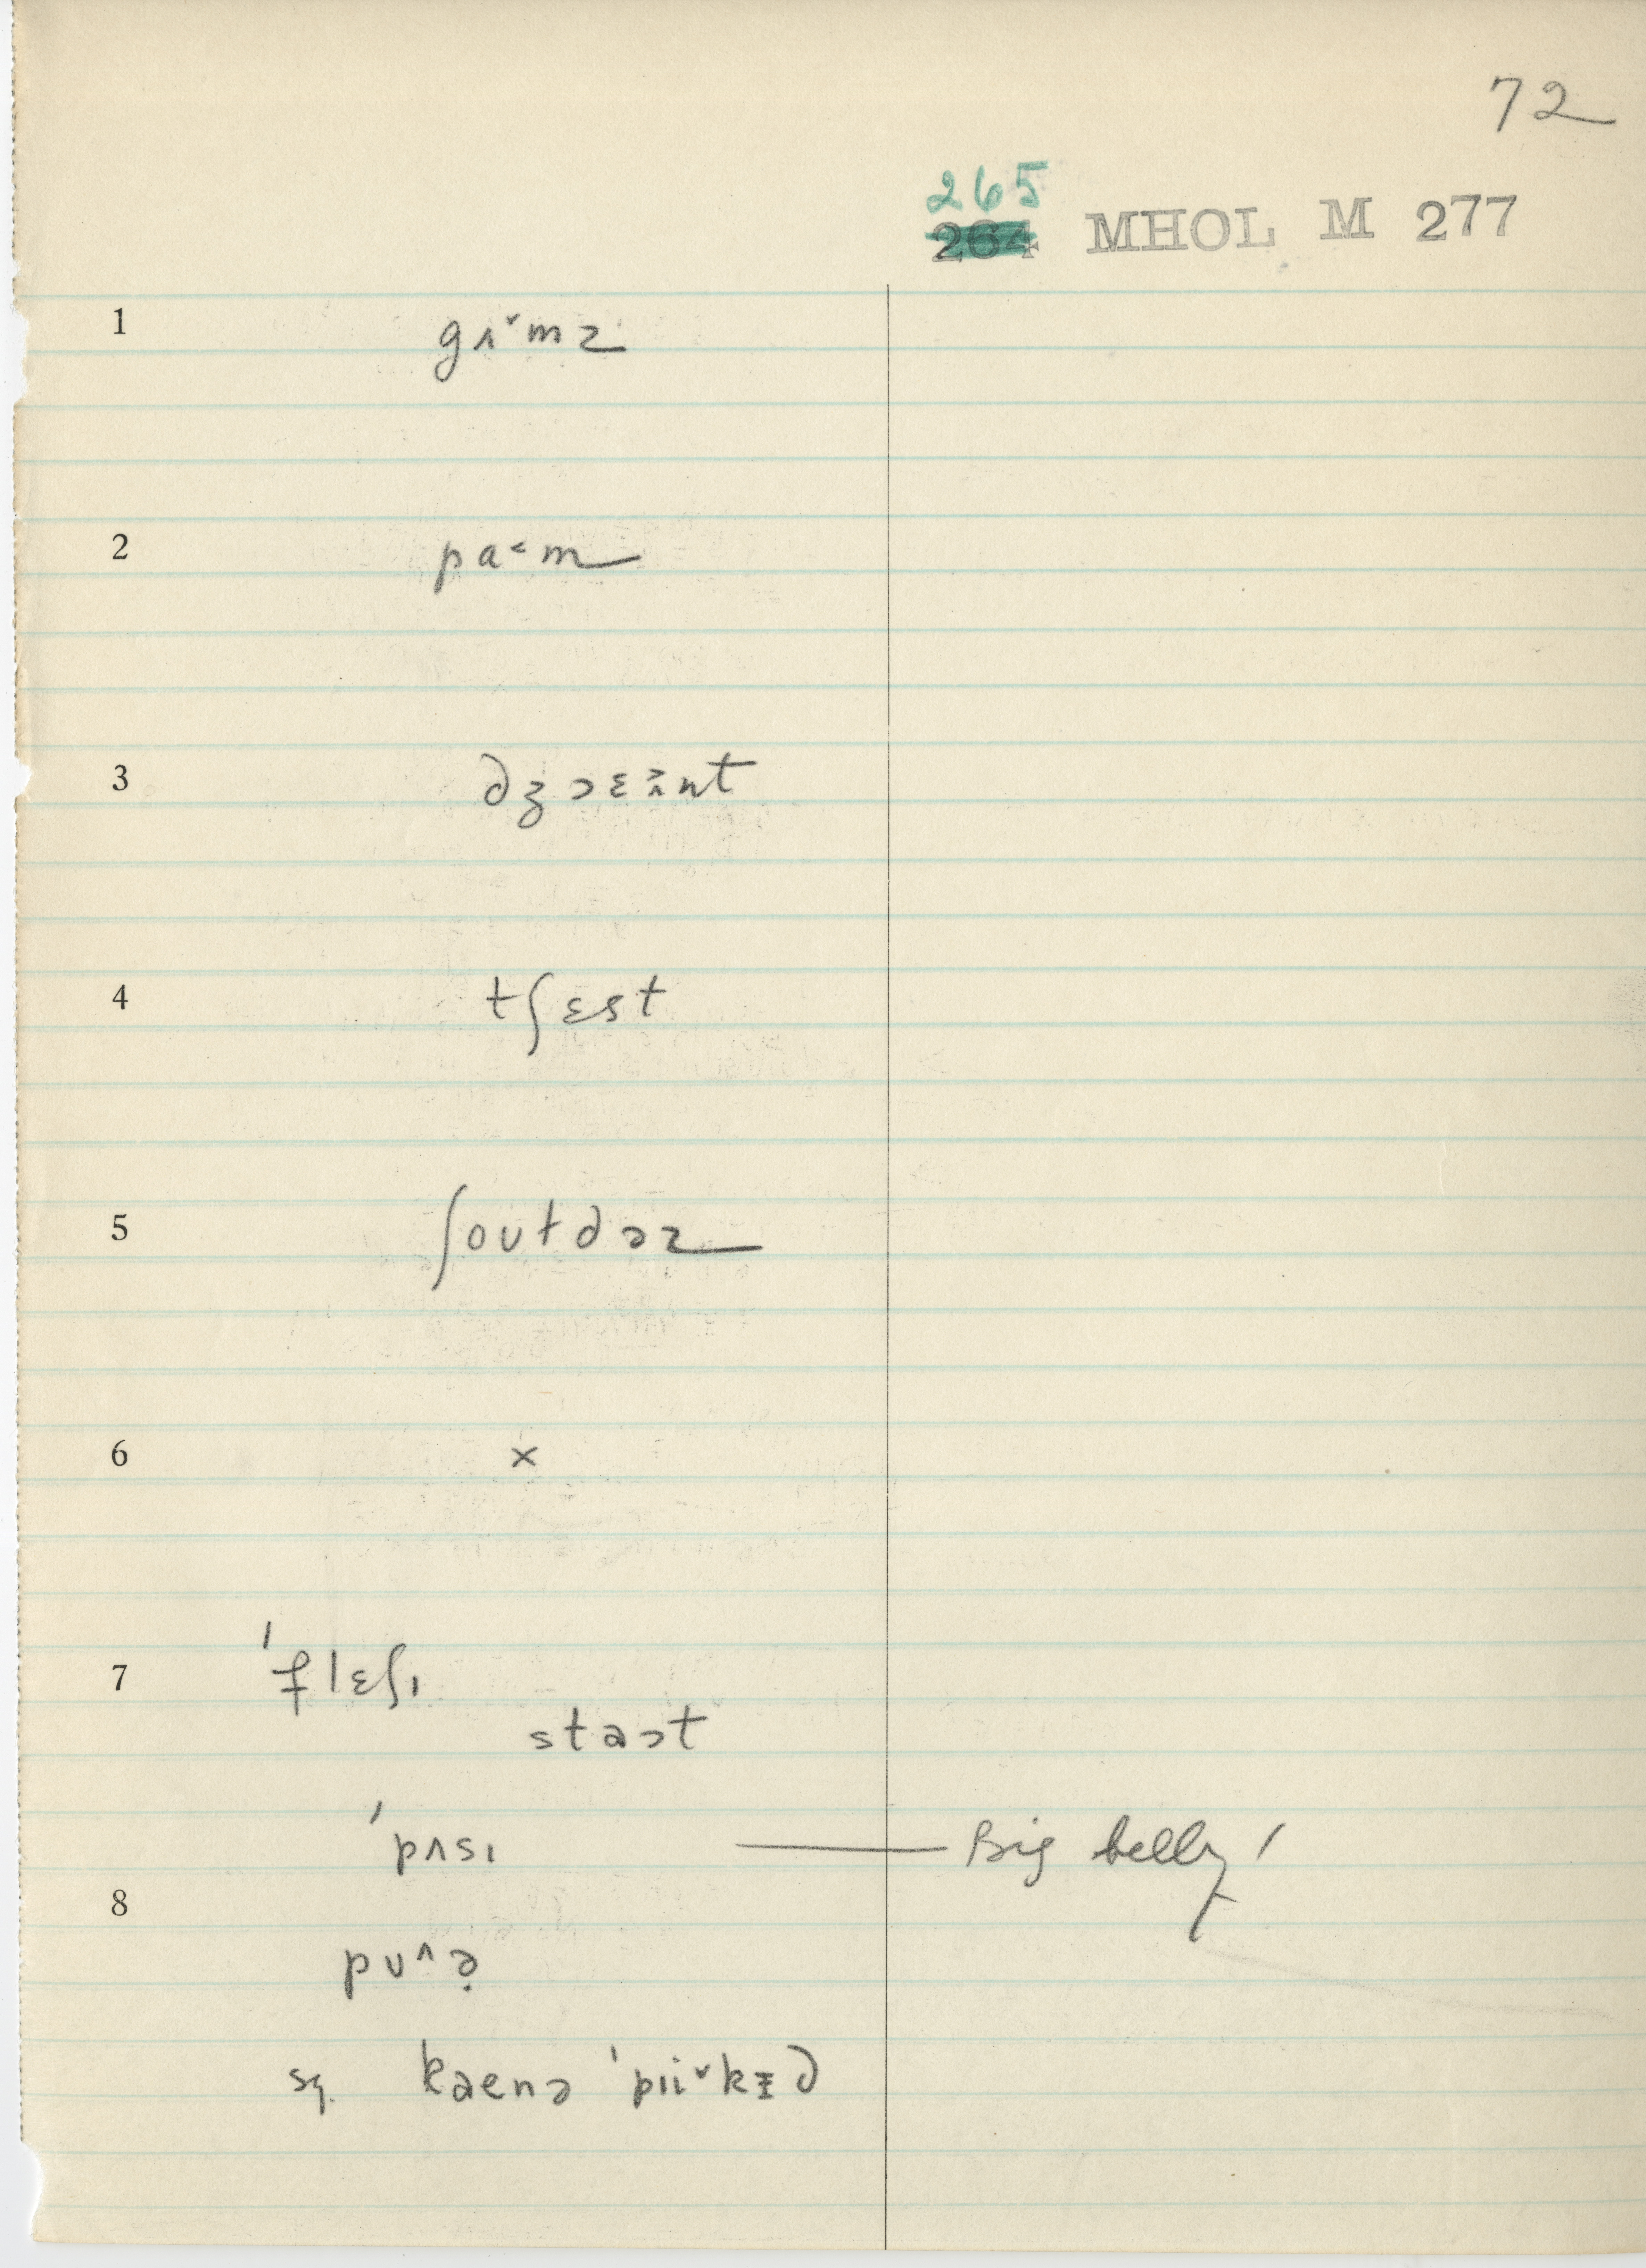 72
265
264 MHOL M 277
1 gʌ˅mz
2 pa˂m
3 dʒɔɛʌ̃nt
4 tʃɛst
5 ʃoʊtdəz
6 x
7 ˈflɛʃɪ
staɔt
ˈpʌsɪ — Big belly!
8
pʊ˄ə̣
sq. kaenə ˈpii˅kɪd